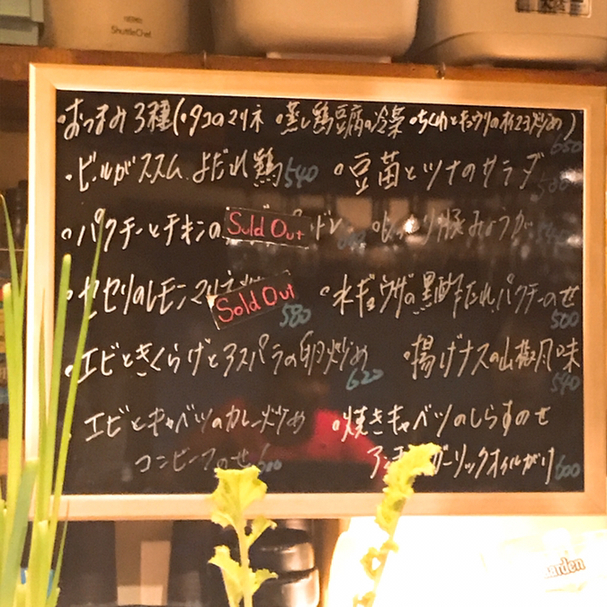 ShuttleChef
・おつまみ3種(・タコのマリネ ・蒸し鶏豆腐の冷菜 ・ちくわとキュウリの
・ビールがススム、よだれ鶏 540 ・豆苗とツナのサラダ
・パクチーとチキンの Sold Out
・セセリのレモンマリネ Sold Out 580 ・水ギョウザの黒酢だれ、パクチーのせ 500
・エビときくらげとアスパラの卵炒め 620 ・揚げナスの山椒風味 540
・エビとキャベツのカレー炒め コンビーフのせ 600 ・焼きキャベツのしらすのせ
ガーリックオイルがけ 600
arden